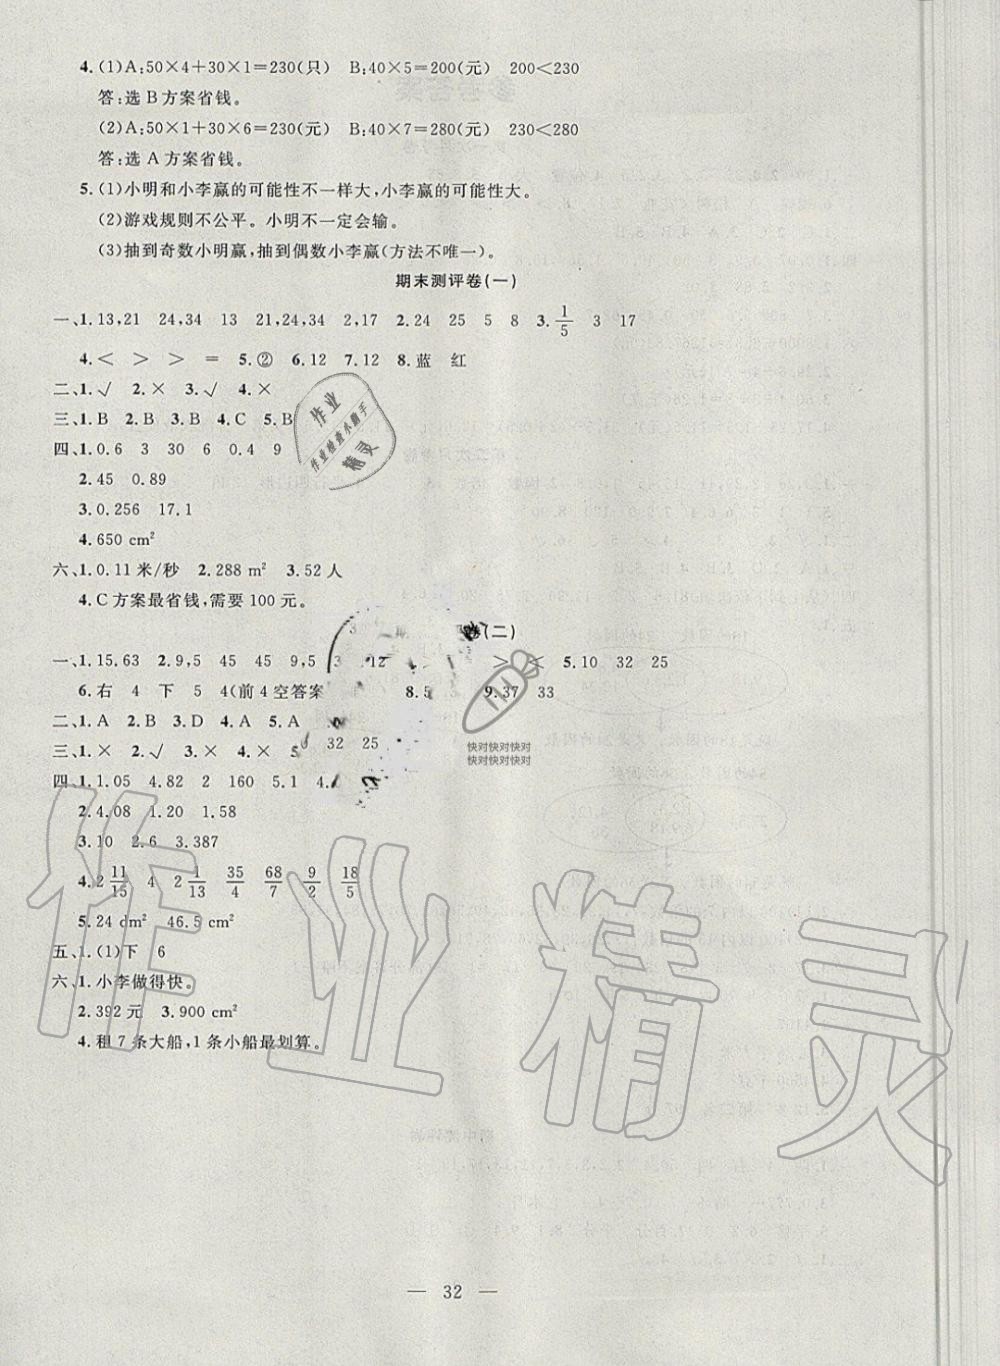 4.(1)A:50×4+30×1=230(只) B:40×5=200(元) 200<230
答:选B方案省钱。
(2)A:50×1+30×6=230(元) B:40×7=280(元) 230<280
答:选A方案省钱。
5.(1)小明和小李赢的可能性不一样大,小李赢的可能性大。
(2)游戏规则不公平。小明不一定会输。
(3)抽到奇数小明赢,抽到偶数小李赢(方法不唯一)。
期末测评卷(一)
一、1.13,21 24,34 13 21,24,34 2,17 2.24 25 5 8 3.1/5 3 17
4.< > > = 5.② 6.12 7.12 8.蓝 红
二、1.√ 2.× 3.√ 4.×
三、1.B 2.B 3.B 4.C 5.B
四、1.0.6 3 30 6 0.4 9
2.45 0.89
3.0.256 17.1
4.650 cm²
六、1.0.11米/秒 2.288 m² 3.52人
4.C方案最省钱,需要100元。
(二)
一、1.15.63 2.9,5 45 45 9,5 > < 5.10 32 25
6.右 4 下 5 4(前4空答案 8.5 9.37 33
二、1.A 2.B 3.D 4.A 5.A
三、1.× 2.√ 3.× 4.× 5
32 25
四、1.1.05 4.82 2 160 5.1 4.
2.4.08 1.20 1.58
3.10 2.6 3.387
4.2 11/15 4 2 1/13 35/4 68/7 9/2 18/5
5.24 dm² 46.5 cm²
五、1.(1)下 6
六、1.小李做得快。
2.392元 3.900 cm²
4.租7条大船,1条小船最划算。
— 32 —
作业
作业检查小助手
精灵
快对快对快对
快对快对快对
作业精灵